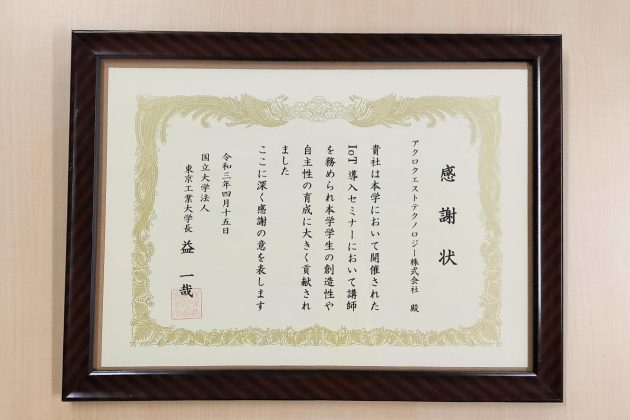 感謝状
アクロクエストテクノロジー株式会社 殿
貴社は本学において開催された
IoT導入セミナーにおいて講師
を務められ本学学生の創造性や
自主性の育成に大きく貢献され
ました
ここに深く感謝の意を表します
令和三年四月十五日
国立大学法人
東京工業大学長 益 一哉